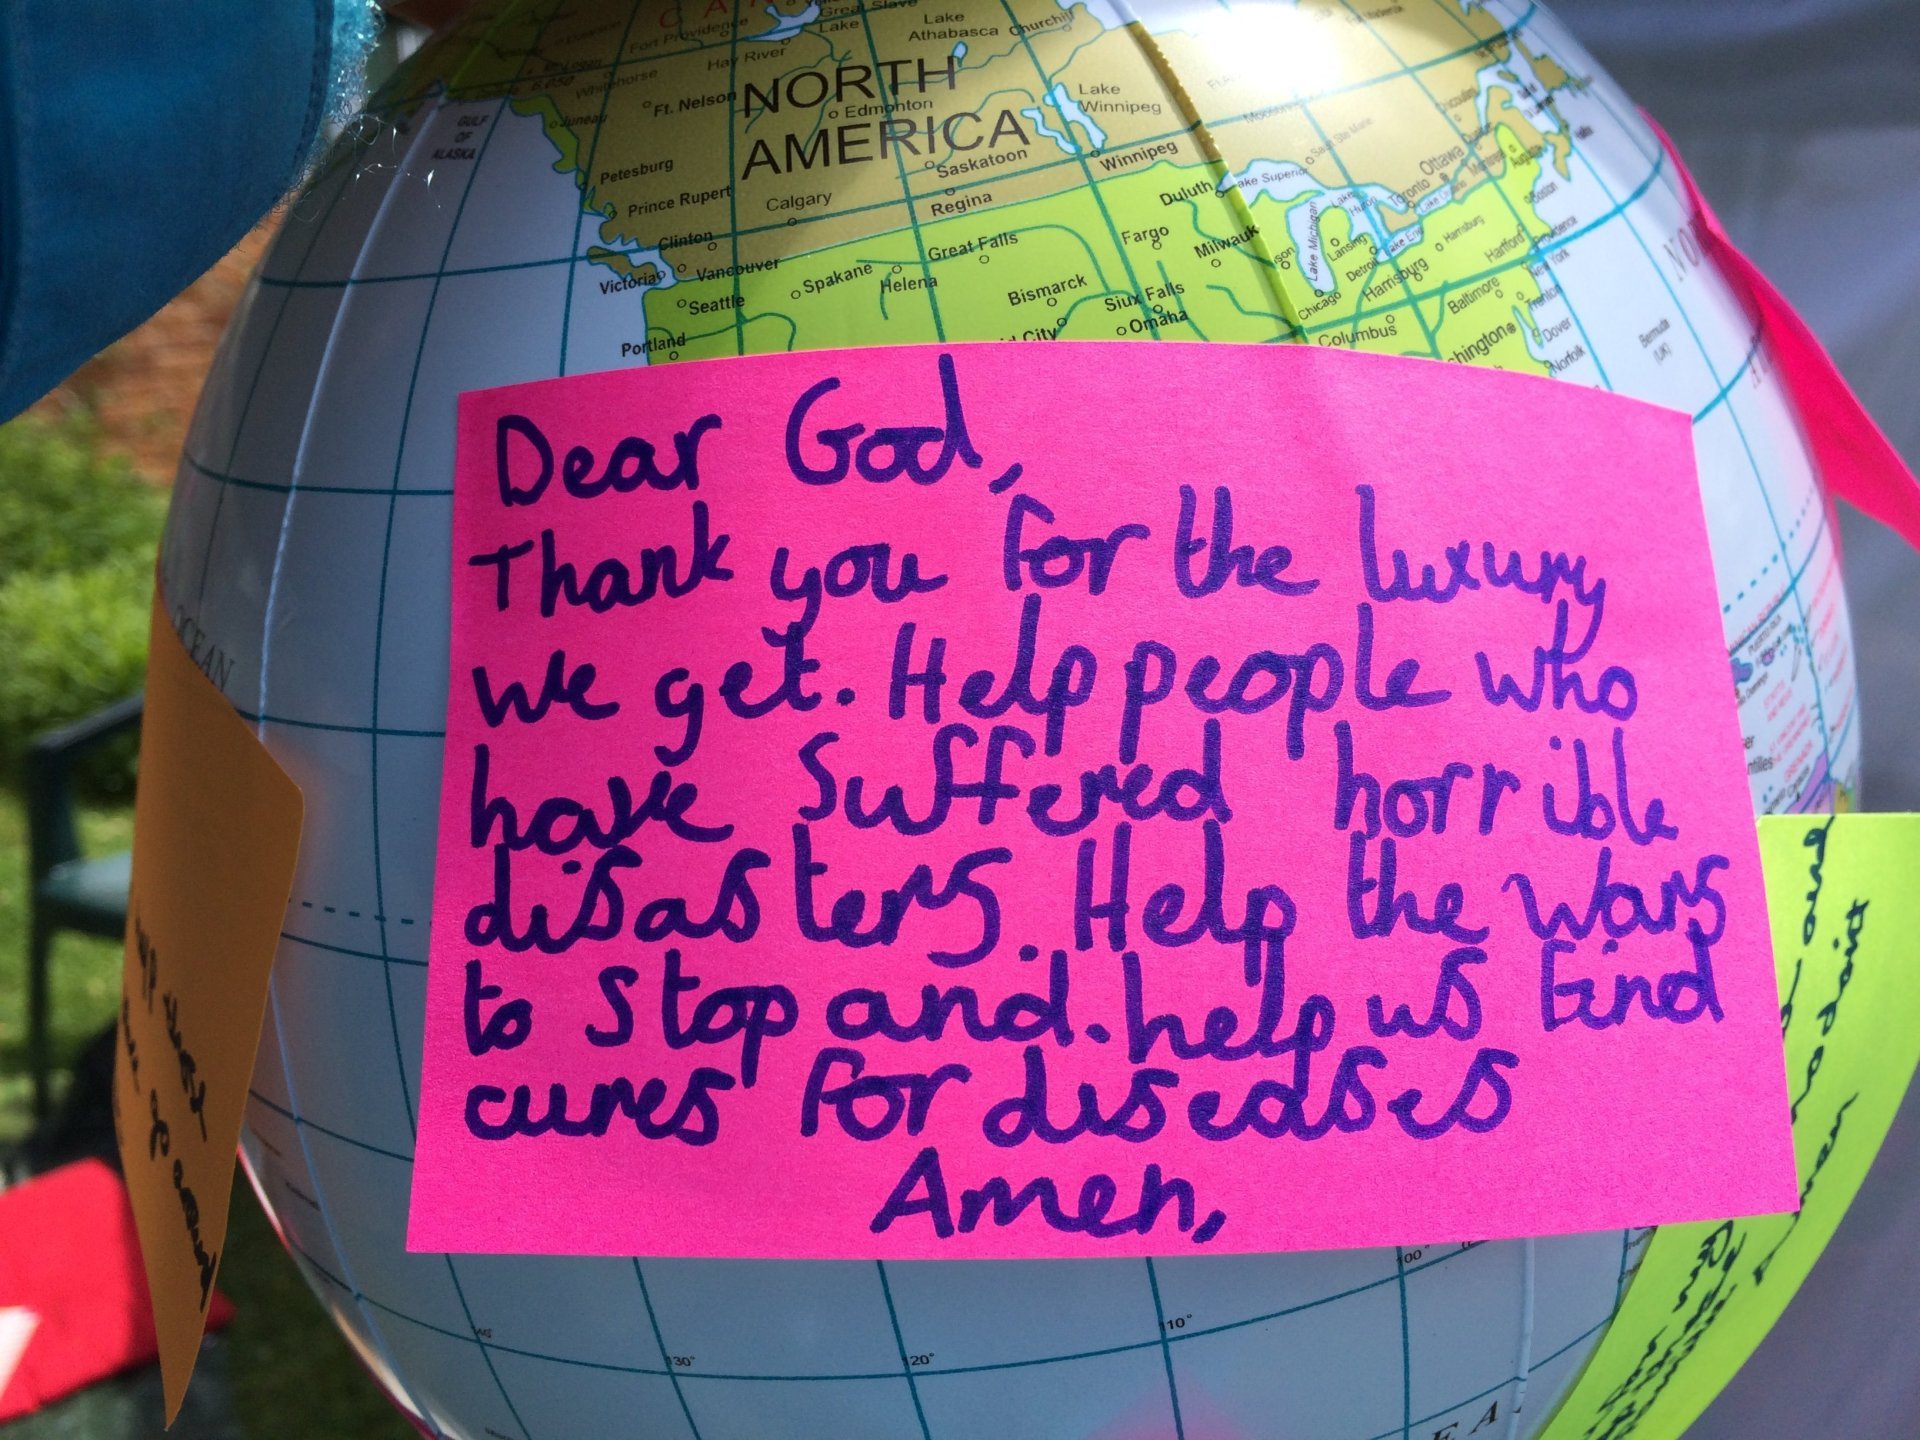 CAN
Great Slave
Lake
Lake
Athabasca
Churchill
Fort Providence
Hay River
Whitehorse
6,050
Juneau
GULF
OF
ALASKA
Ft. Nelson
NORTH
AMERICA
Edmonton
Lake
Winnipeg
Petesburg
Saskatoon
Winnipeg
Prince Rupert
Calgary
Regina
Duluth
Lake Superior
Sault Ste Marie
Ottawa
Toronto
Boston
Clinton
Victoria
Vancouver
Spakane
Great Falls
Helena
Fargo
Milwauk
Lake Michigan
Lansing
Detroit
Lake Erie
Harrisburg
Hartford
Providence
New York
Seattle
Bismarck
Siux Falls
Omaha
Chicago
Harrisburg
Baltimore
Trenton
Portland
d City
Columbus
hington
Dover
Norfolk
Bermuda
(UK)
OCEAN
Dear God,
Thank you for the luxury
we get. Help people who
have suffered horrible
disasters. Help the wars
to stop and help us find
cures for diseases
Amen,
130°
120°
110°
100°
EA